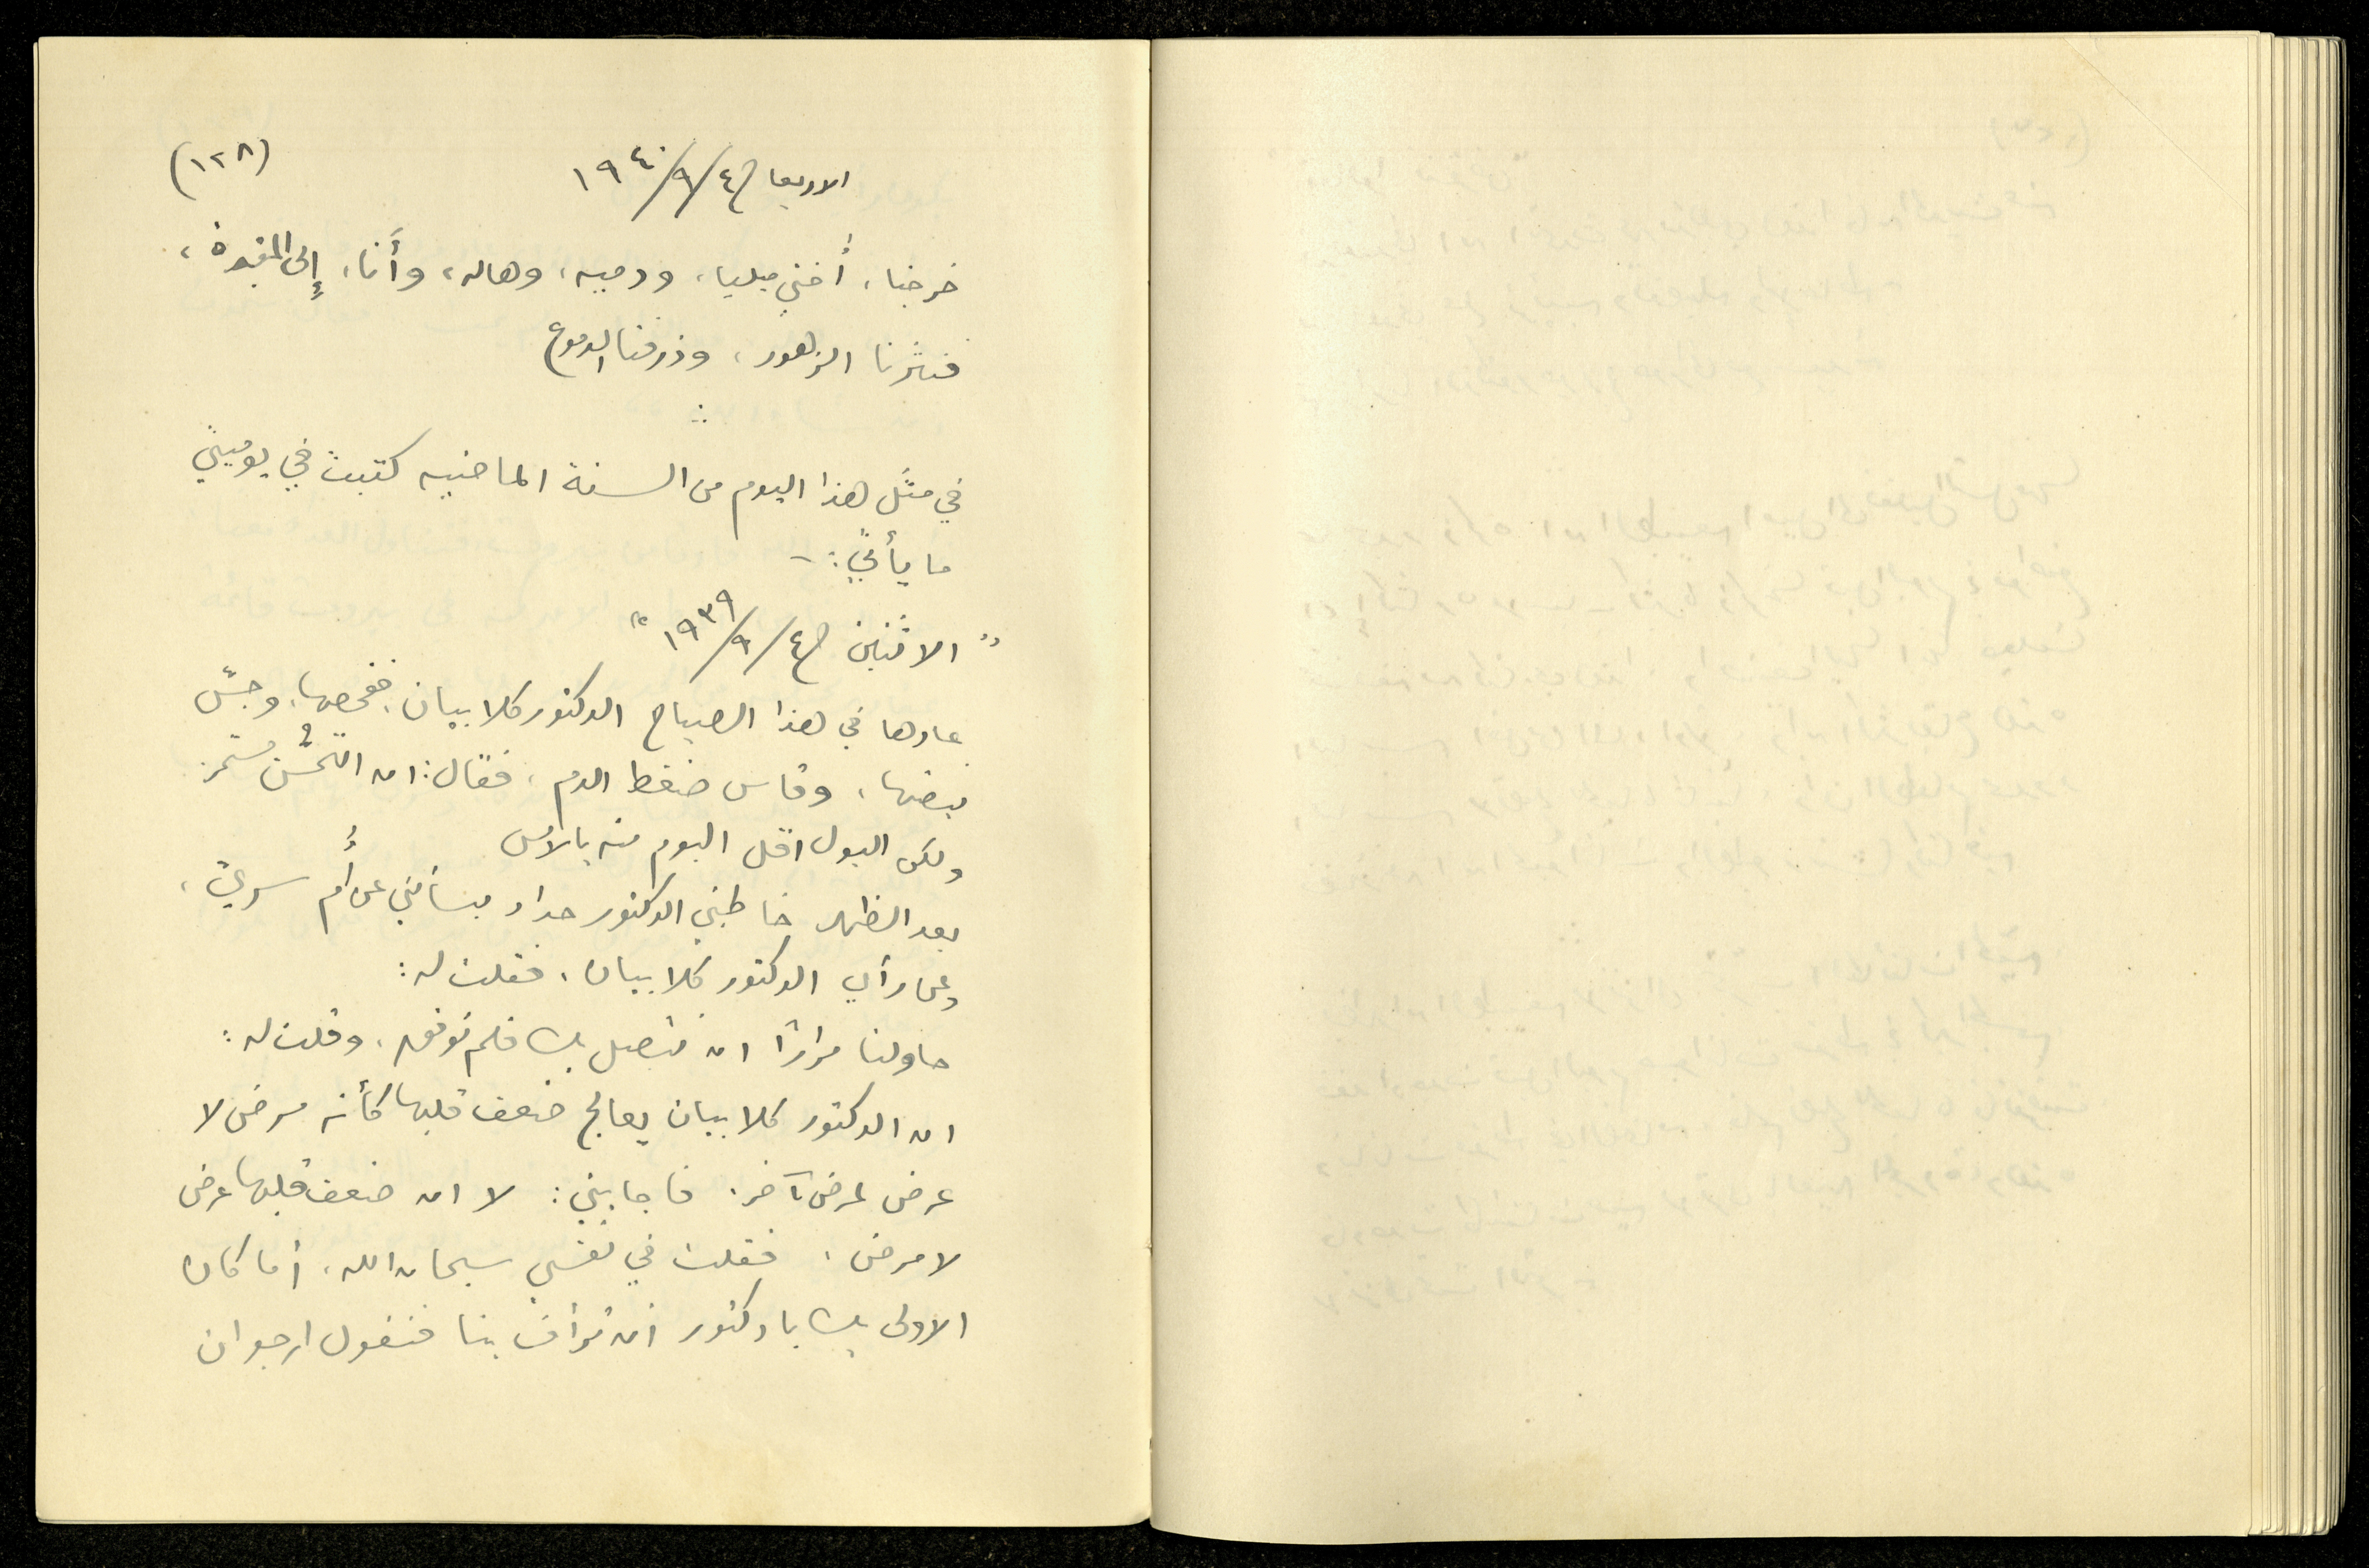 (١٢٨)
الاربعا في ٤/٩/١٩٤٠
خرجنا، أختي ميليا، ودميه، وهاله، وأنا، إلى المقبرة،
فنثرنا الزهور، وذرفنا الدموع
في مثل هذا اليوم من السنة الماضيه كتبت في يوميتي
ما يأتي: -
"الاثنين في ٤/٩/١٩٣٩"
عادها في هذا الصباح الدكتور كلابيان، ففحصها، وجسّ
نبضها، وقاس ضغط الدم، فقال: ان التحسُّن مستمر
ولكن البول اقل اليوم منه بالامس
بعد الظهر خاطبني الدكتور حداد يسألني عن أُم سري،
وعن رأي الدكتور كلابيان، فقلت له:
حاولنا مرارًا ان نتصل بك فلم نوفق، وقلت له:
ان الدكتور كلابيان يعالج ضعف قلبها كأنه مرض لا
عرض لمرض آخر. فاجابني: لا ان ضعف قلبها عرض
لا مرض، فقلت في نفسي سبحان الله، أما كان
الاولى بك يا دكتور ان ترأف بنا فتقول ارجو ان